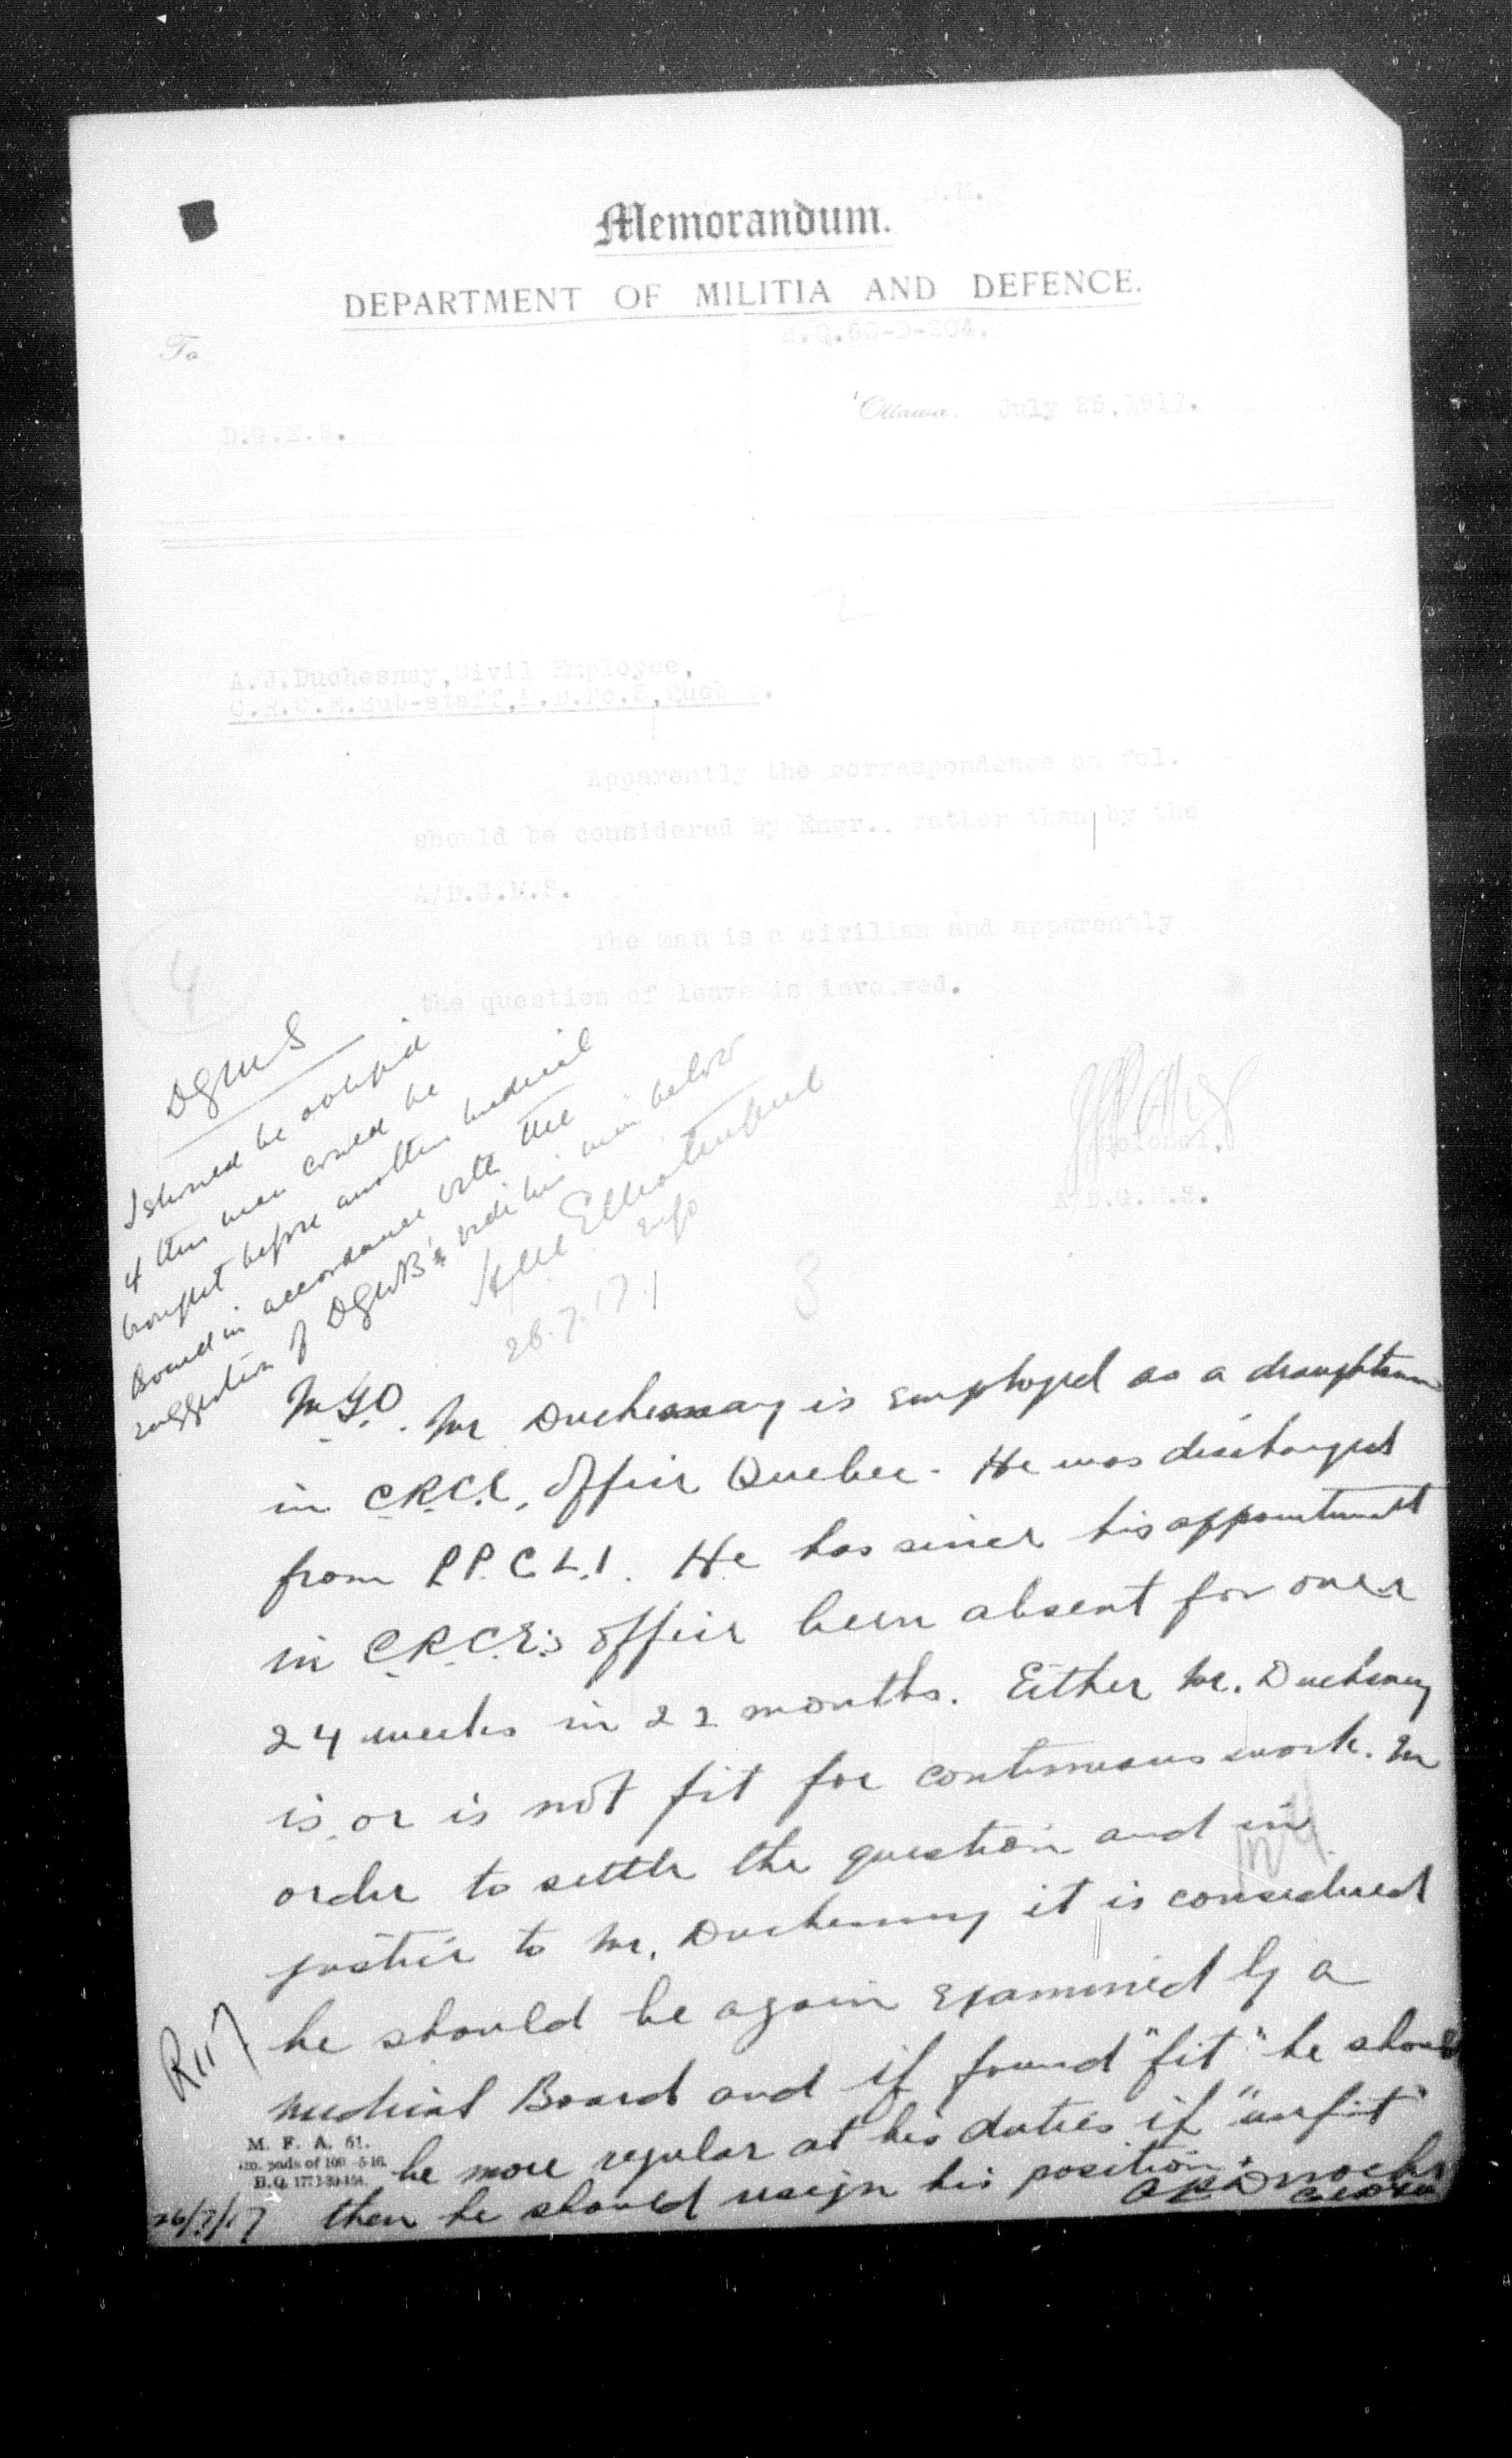 Memorandum.
DEPARTMENT OF MILITIA AND DEFENCE.
H.Q.60-D-204.
To
Ottawa, July 25, 1917.
D.G.E.S.
2
A.J.Duchesnay, Civil Employee,
C.R.C.E. Sub-staff, M.D.No.5, Quebec.
Apparently the correspondence on fol.
should be considered by Engr., rather than by the
A/D.G.M.S.
The man is a civilian and apparently
the question of leave is involved.
4
Colonel,
A/D.G.M.S.
DGMS
I should be obliged
if this man could be
brought before another medical
Board in accordance with the
suggestion of
min below
26.7.17
3
MGO. Mr Duchesnay is employed as a draughtsman
in C.R.C.E. Office Quebec. He was discharged
from P.P.C.L.I. He has since his appointment
in C.R.C.E's office been absent for over
24 weeks in 22 months. Either Mr. Duchesnay
is, or is not fit for continuous work. In
order to settle the question and in
justice to Mr. Duchesnay it is considered
he should be again examined by a
Medical Board and if found "fit" he should
be more regular at his duties if "unfit"
then he should resign his position.
M. F. A. 61.
pads of 100 -5-16.
H.Q. 1772-39-154.
26/7/17